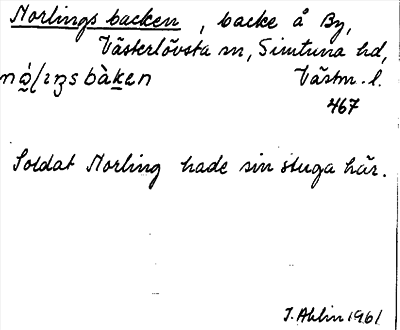 Norlings backen, backe å By,
Västerlövsta sn, Simtuna hd,
Västm. l.
467
Soldat Norling hade sin stuga här.
J. Ahlin 1961